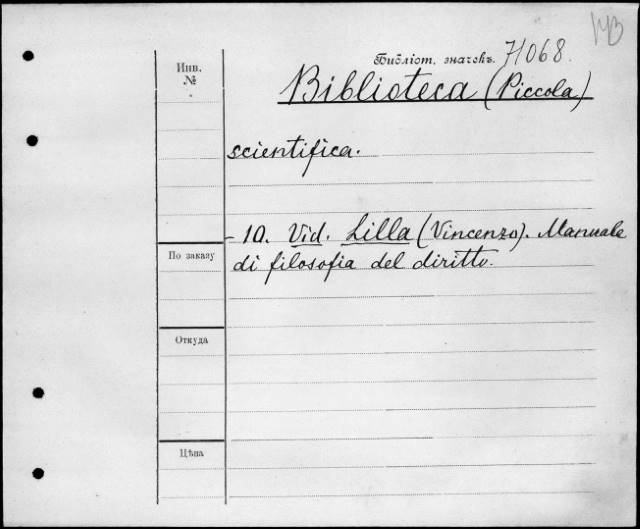 Библіот. значекъ. 71068.
Инв.
№
Biblioteca (Piccola)
scientifica.
- 10. Vid. Lilla (Vincenzo). Manuale
di filosofia del diritto.
По заказу
Откуда
Цѣна